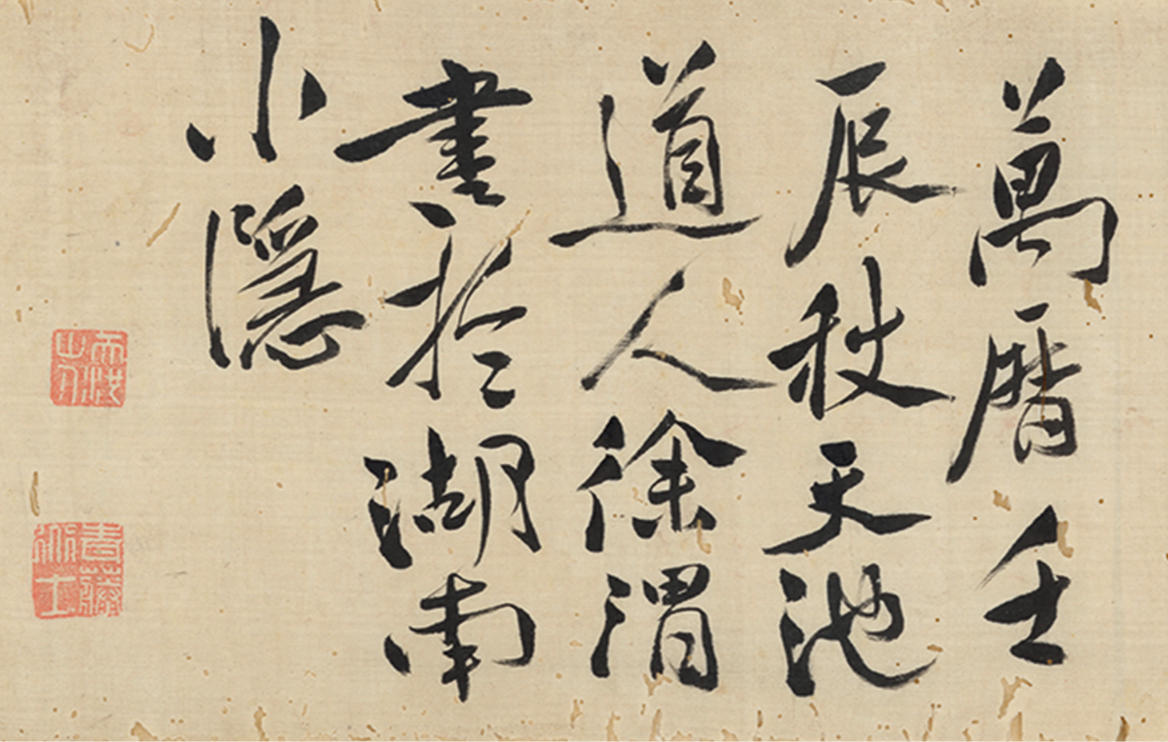 萬曆壬
辰秋天池
道人徐渭
書於湖南
小隱
青藤